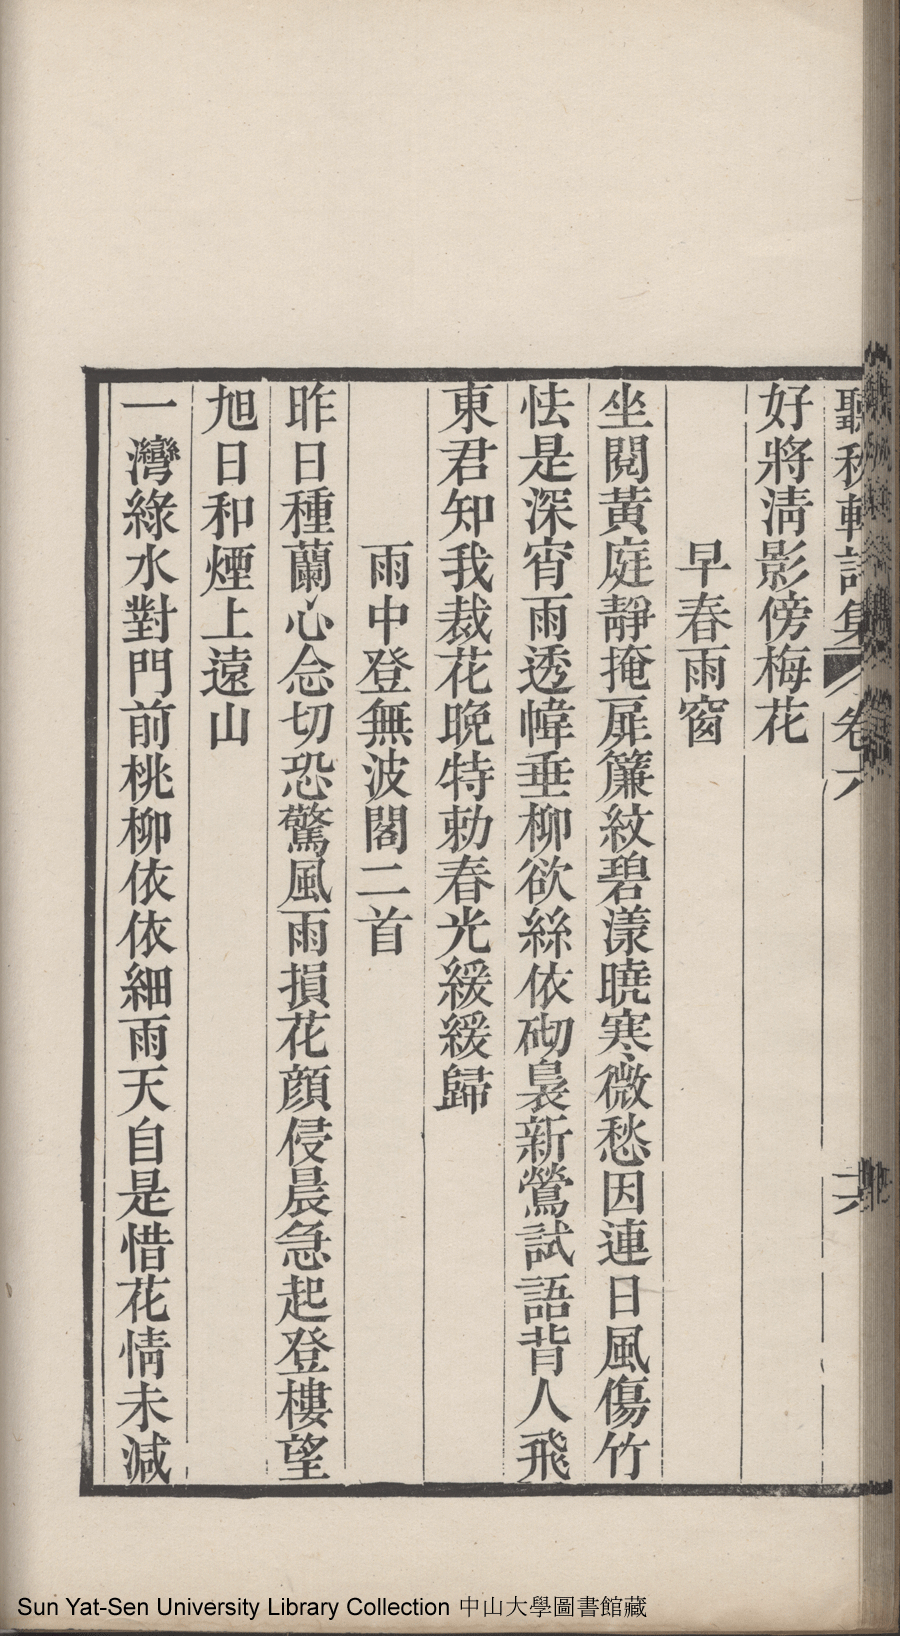 聽秋軒詩集 卷六 六
好將清影傍梅花
早春雨窗
坐閱黃庭靜掩扉簾紋碧漾曉寒微愁因連日風傷竹
怯是深宵雨透幃垂柳欲絲依砌裊新鶯試語背人飛
東君知我裁花晚特勑春光緩緩歸
雨中登無波閣二首
昨日種蘭心念切恐驚風雨損花顏侵晨急起登樓望
旭日和煙上遠山
一灣綠水對門前桃柳依依細雨天自是惜花情未減
Sun Yat-Sen University Library Collection 中山大學圖書館藏